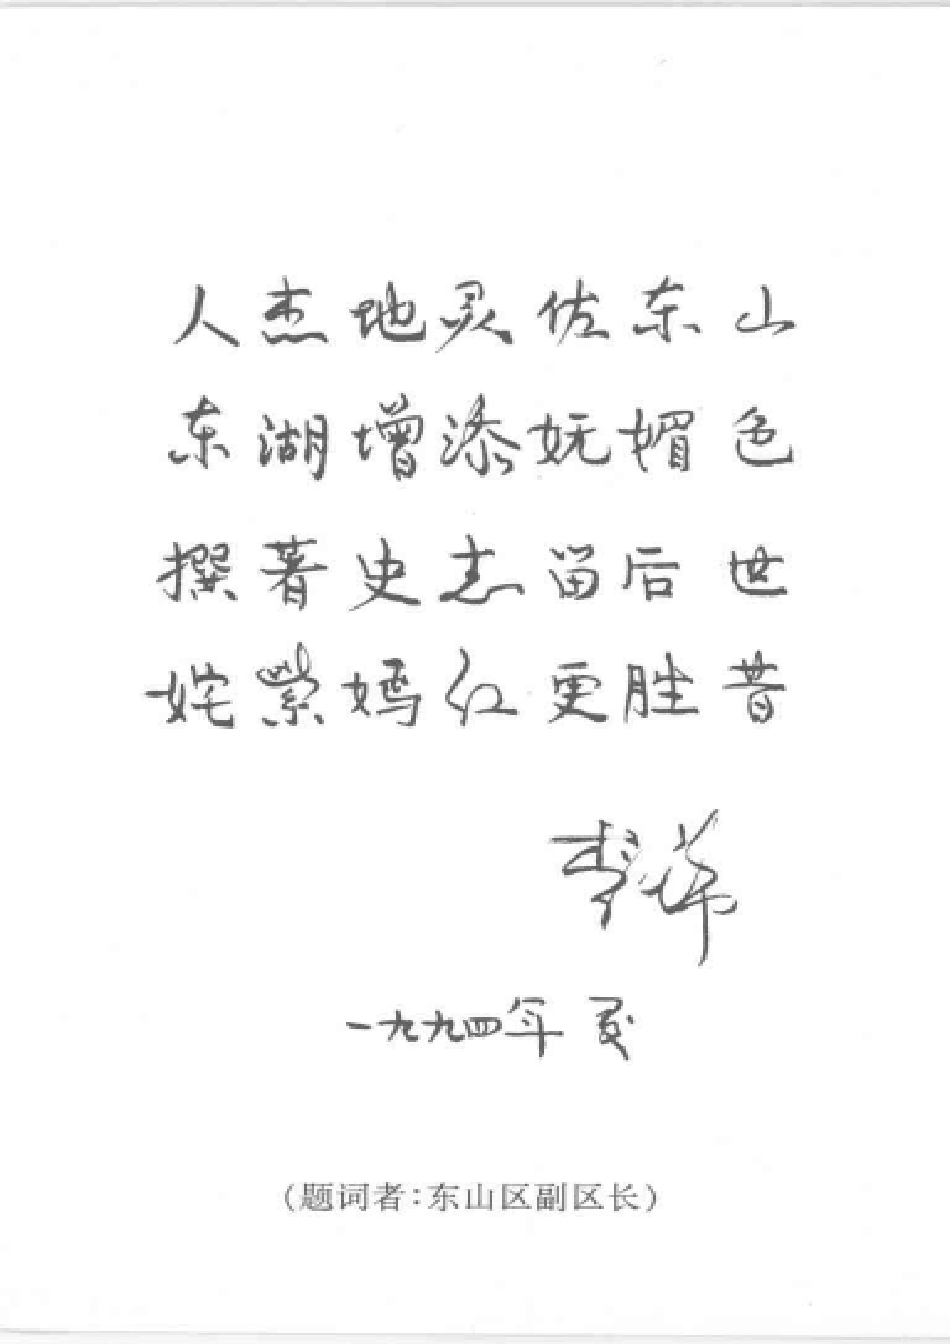 人杰地灵佐东山
东湖增添妩媚色
撰著史志留后世
姹紫嫣红更胜昔
李
一九九四年夏
(题词者:东山区副区长)